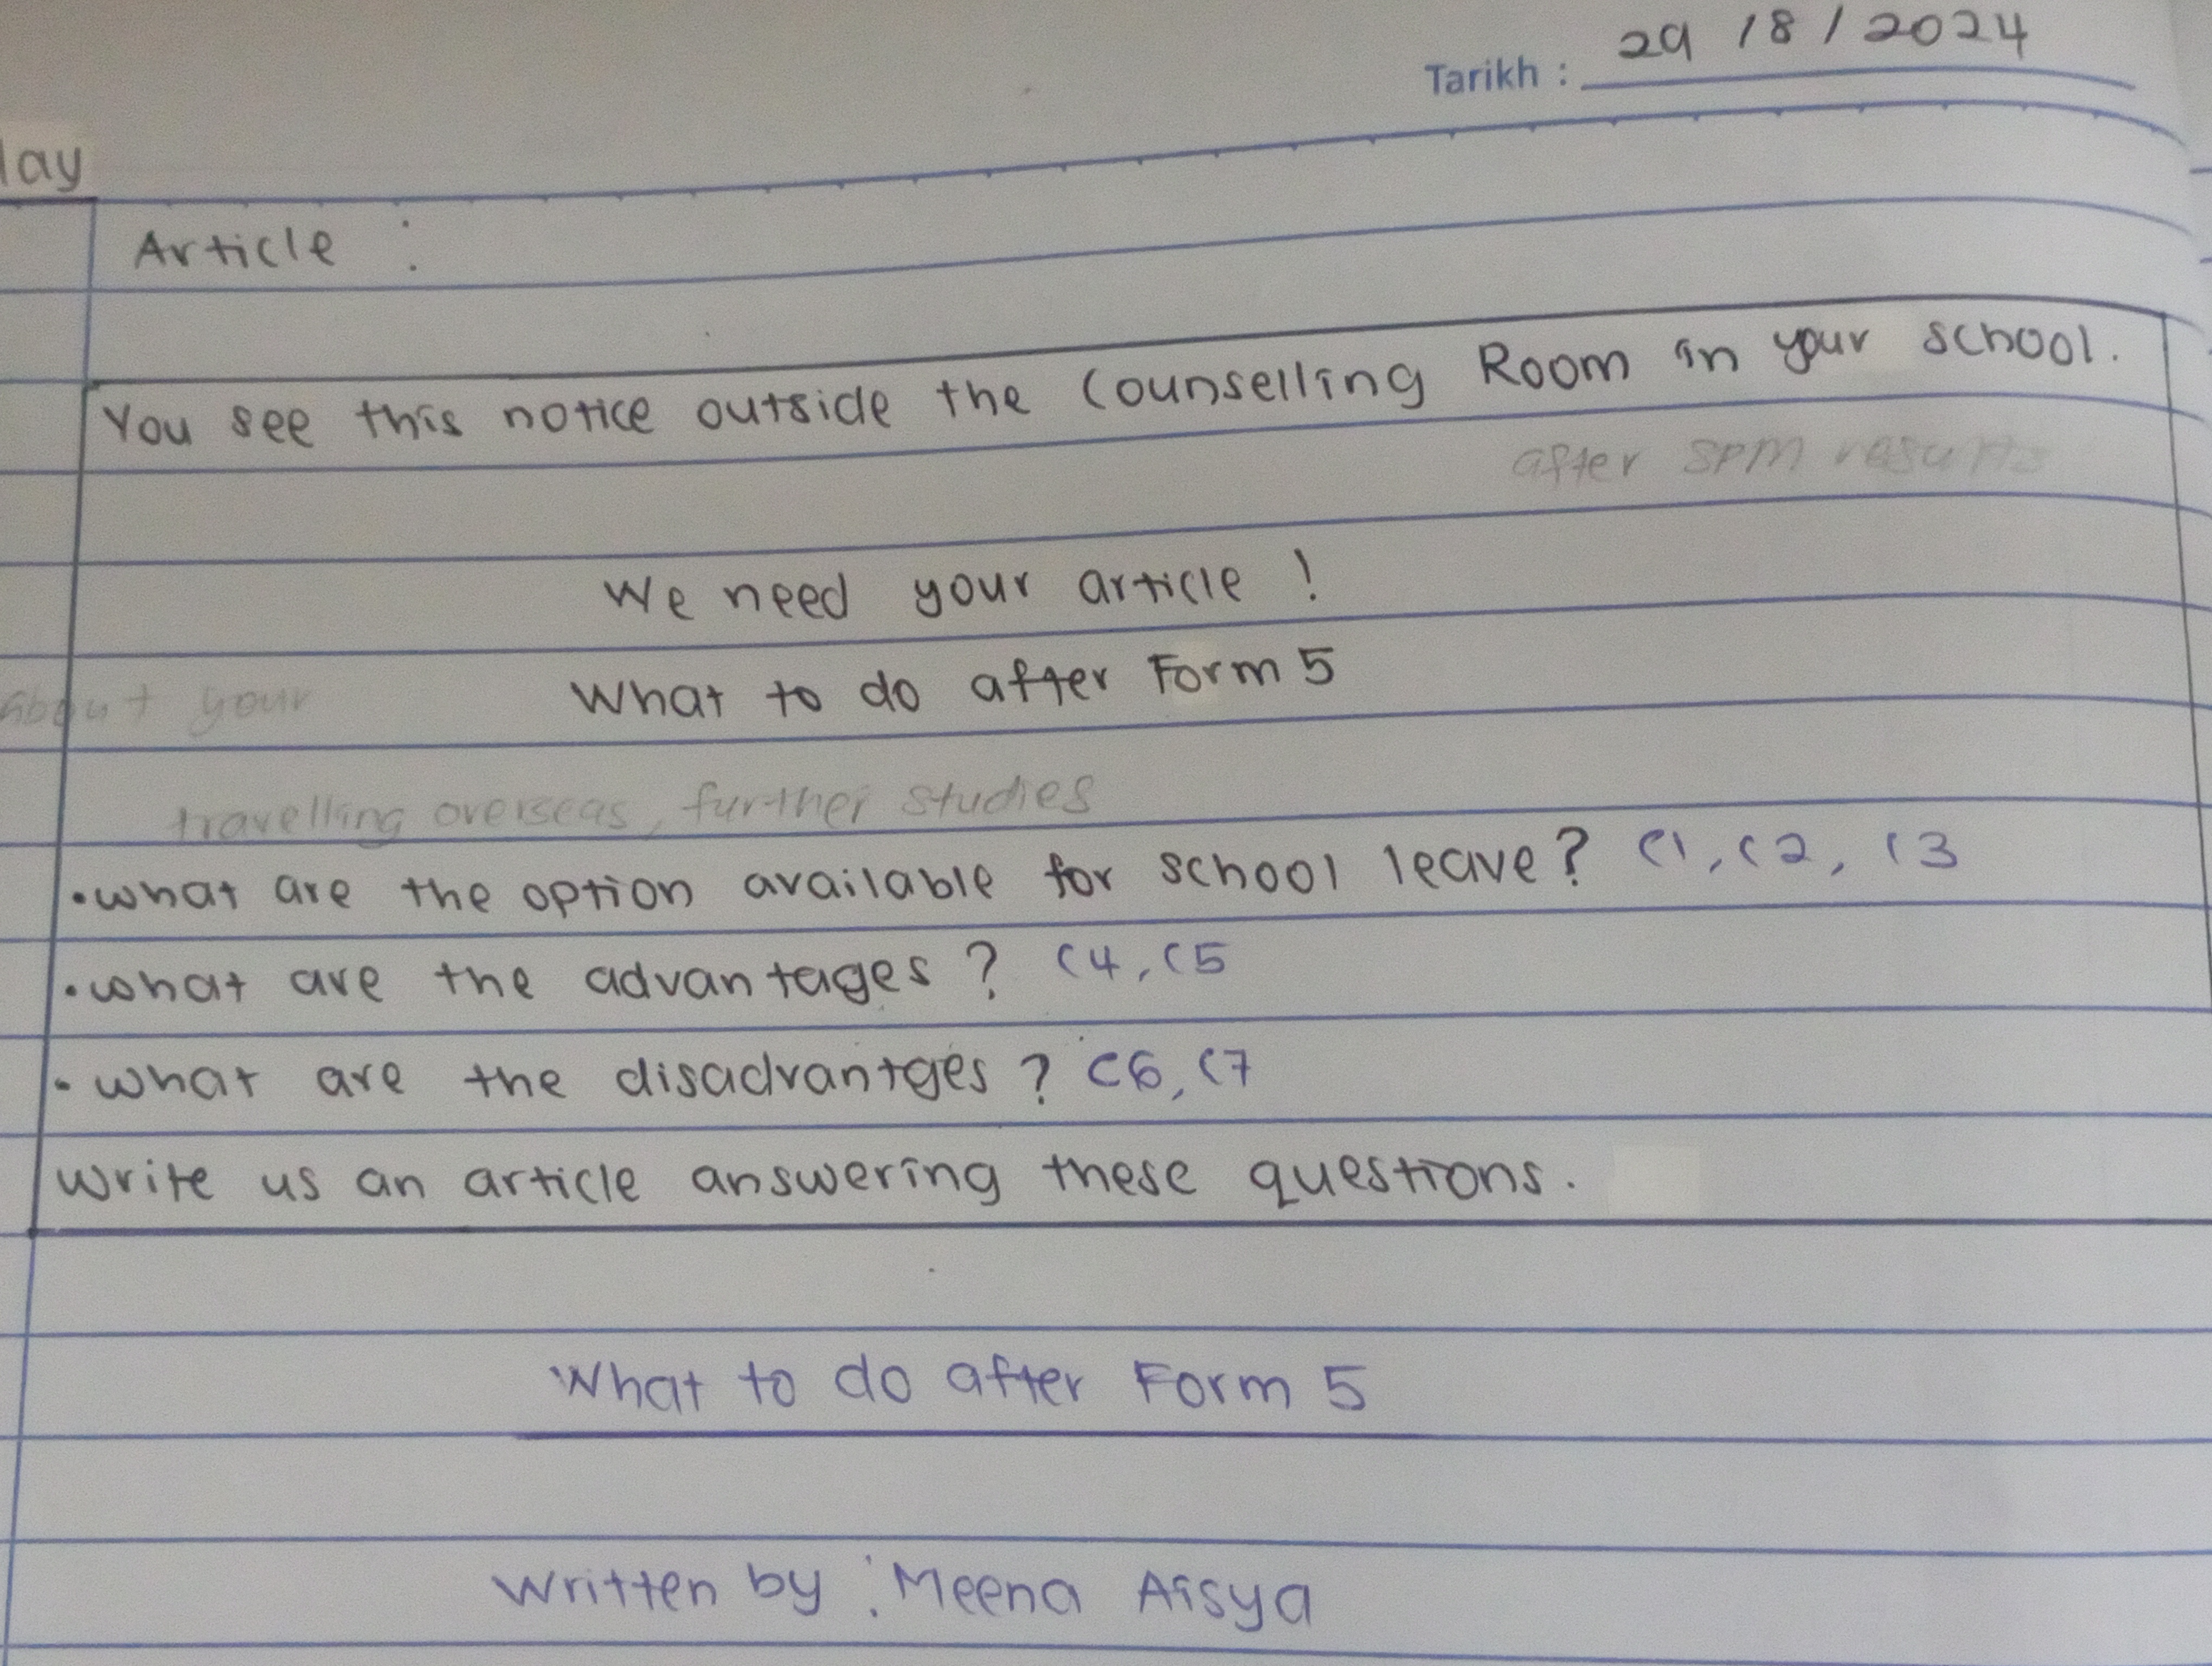 Tarikh : 29 / 8 / 2024
lay
Article :
You see this notice outside the Counselling Room in your school.
after SPM results
We need your article !
What to do after Form 5
About your
travelling overseas, further studies
•what are the option available for school leave? C1, C2, C3
•what are the advantages ? C4, C5
•what are the disadvantges ? C6, C7
Write us an article answering these questions.
What to do after Form 5
Written by : Meena Aisya